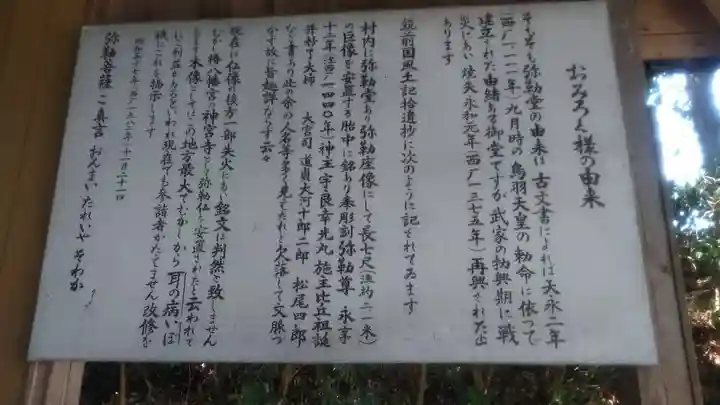 おみろく様の由来
そもそも弥勒堂の由来は古文書によれば天永二年
(西厂一一一一年)九月時の鳥羽天皇の勅命に依って
建立された由緒ある御堂ですが武家の勃興期に戦
火にあい焼失永和元年(西厂一三七五年)再興された由
あります
筑前国風土記拾遺抄に次のように記されてゐます
村内に弥勒堂あり弥勒座像にして長七尺(注約二一米)
の巨像を安置する胎中に銘あり奉彫刻弥勒尊永享
十二年(注西厂一四四〇年)神主宗良幸光丸施主比丘祖誕
井村守大掾 大宮司道貞大河十郎二郎 松尾四郎
など書あり此の余の人名等多く見えたれど欠落して文脈つ
かず故に皆趣詳ならず云々
現在は仏像の後方一部焼失にあい銘文は判然と致しません
むかし椿八幡宮の神宮寺として弥勒仏を安置されたと云われて
います本像としてはこの地方最大でむかしから耳の病いぼ
に御利益があるといわれ現在でも参詣者がたえません改修を
機にこれを掲示します
昭和五十七年(西厂一九八二年)十一月二十一日
弥勒菩薩ご真言 おんまいたれいや そわか